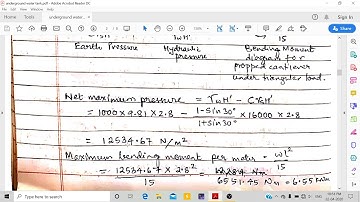 underground water tank.pdf - Adobe Acrobat Reader DC
File Edit View Window Help
Home Tools
Earth Pressure Hydraulic pressure Bending Moment diagram for propped cantilever under triangular load.
15
Net maximum pressure = γwH' - CγsH'
= 1000 × 9.81 × 2.8 - 1-Sin30° / 1+Sin30° × 16000 × 2.8
= 12534.67 N/m²
Maximum bending moment per meter = wl² / 15
= 12534.67 × 2.8² / 15 =
6551.45 Nm = 6.55